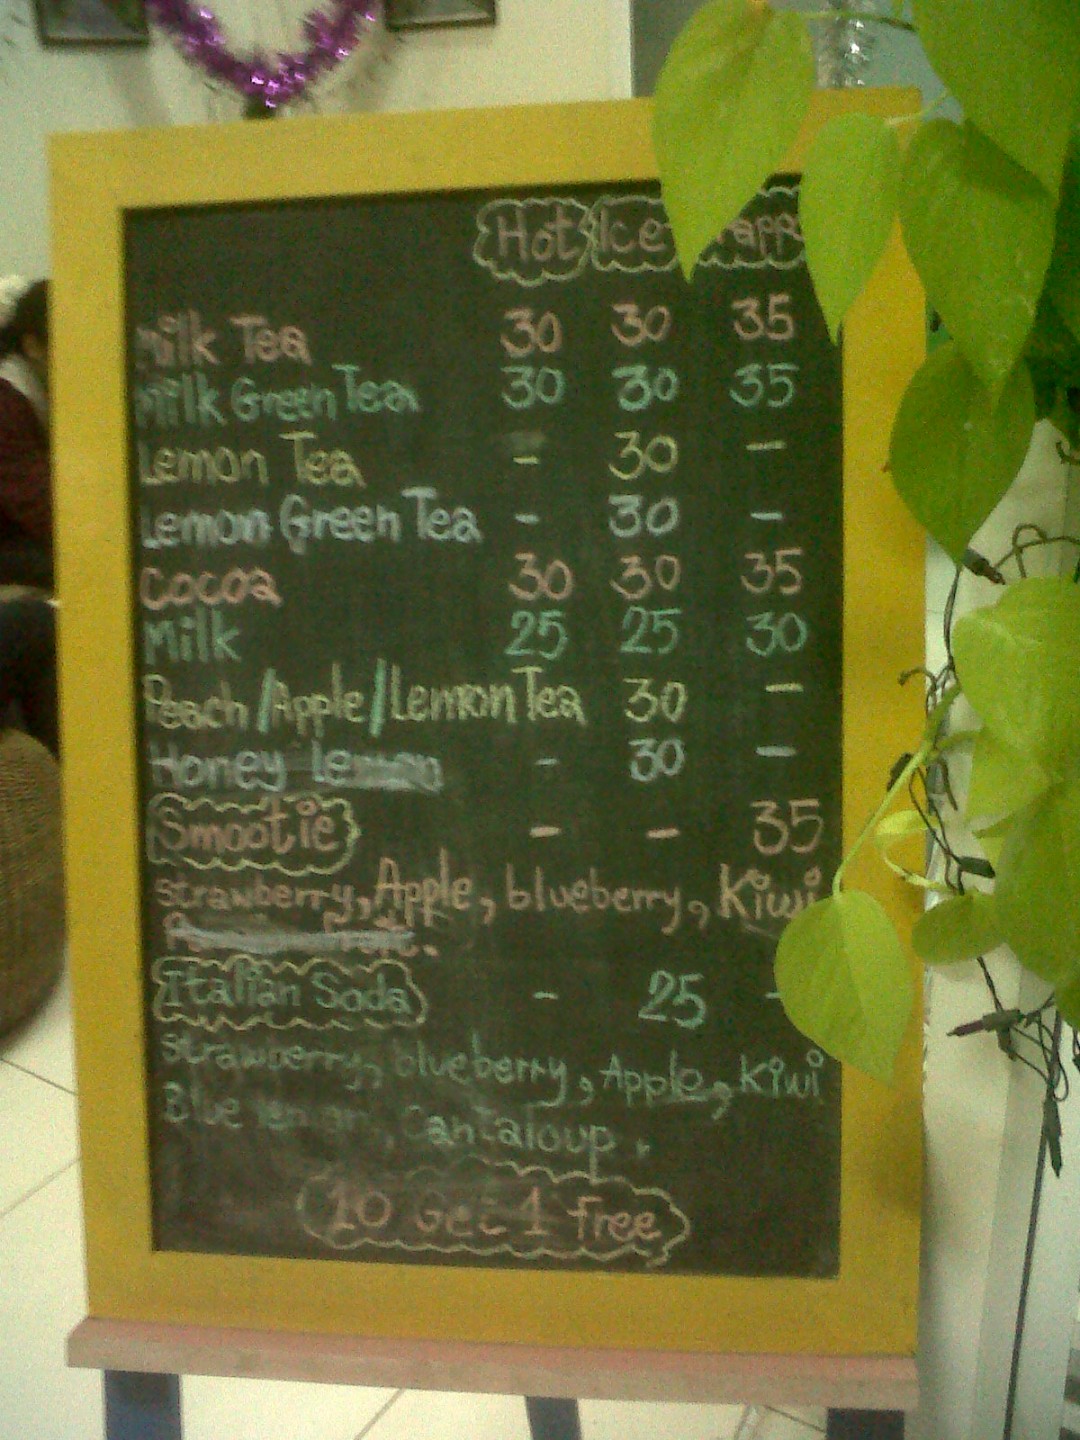 Hot Ice
Milk Tea 30 30 35
Milk Green Tea 30 30 35
Lemon Tea - 30 -
Lemon Green Tea - 30 -
Cocoa 30 30 35
Milk 25 25 30
Peach/Apple/Lemon Tea 30 -
Honey lemon - 30 -
Smootie - - 35
strawberry, Apple, blueberry, Kiwi
Italian Soda - 25 -
strawberry, blueberry, Apple, Kiwi
Blue lemon, Cantaloup.
10 Get 1 free